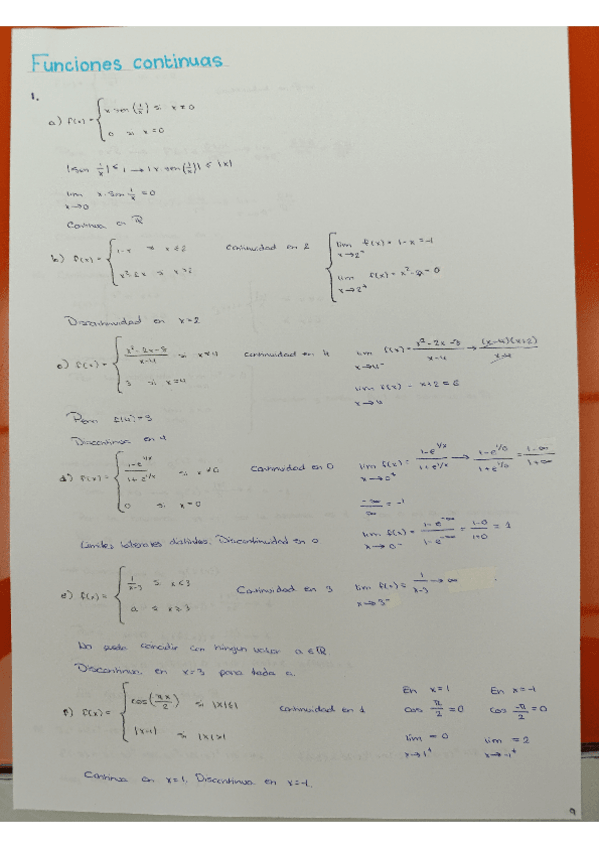 Funciones continuas
1.
a) f(x) = { x sen(1/x) si x≠0
0 si x=0
|sen 1/x| ≤ 1 → |x sen(1/x)| ≤ |x|
lim x→0 x·sin 1/x = 0
Continua en ℝ
b) f(x) = { 1-x si x≤2
x²-2x si x>2
Continuidad en 2
lim x→2⁻ f(x) = 1-x = -1
lim x→2⁺ f(x) = = 0
Discontinuidad en x=2
c) f(x) = { x²-2x-8 / x-4 si x≠4
3 si x=4
Continuidad en 4
lim f(x) = x²-2x-8 / x-4 → (x-4)(x+2) / x-4
lim f(x) = x+2 = 6
Pero f(4)=3
Discontinua en 4
d) f(x) = { 1-e^1/x / 1+e^1/x si x≠0
0 si x=0
Continuidad en 0
lim x→0⁺ f(x) = 1-e^1/x / 1+e^1/x → 1-e^1/0 / 1+e^1/0 = 1-∞ / 1+∞
-∞ / ∞ = -1
lim x→0⁻ f(x) = 1-e^-∞ / 1-e^-∞ = 1-0 / 1+0 = 1
Límites laterales distintos. Discontinuidad en 0.
e) f(x) = { 1 / x-3 si x<3
a si x≥3
Continuidad en 3
lim x→3⁻ f(x) = 1 / x-3 → ∞
No puede coincidir con ningun valor a∈ℝ
Discontinua en x=3 para todo a.
f) f(x) = { cos(πx/2) si |x|≤1
|x-1| si |x|>1
Continuidad en 1
En x=1 En x=-1
cos π/2 = 0 cos -π/2 = 0
lim x→1⁺ = 0 lim = 2
Continua en x=1. Discontinua en x=-1.
9